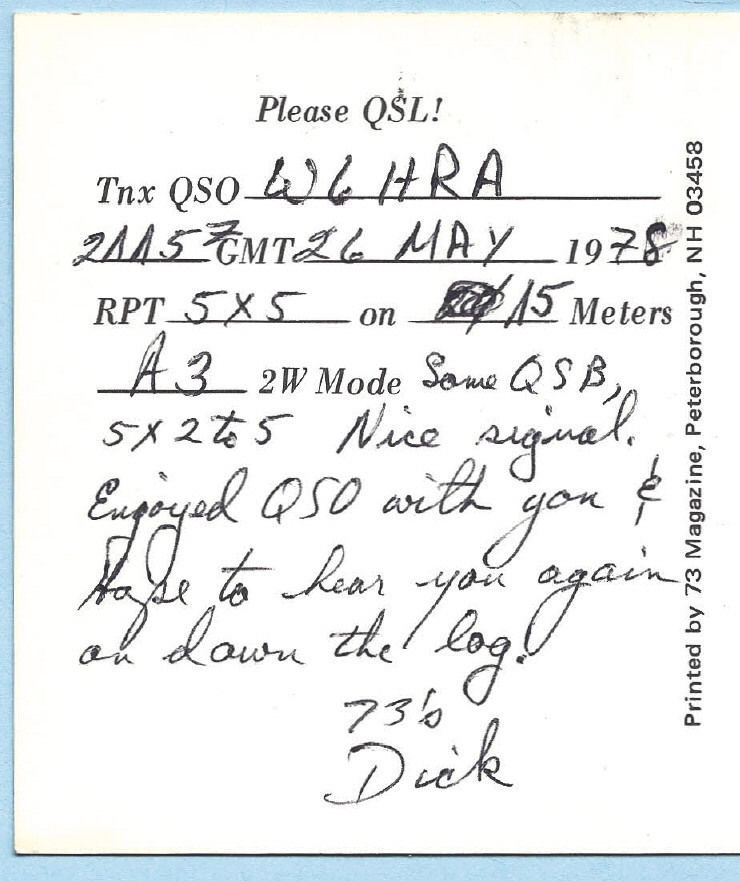 Please QSL!
Tnx QSO W6HRA
2115Z GMT 26 MAY 1978
RPT 5X5 on 15 Meters
A3 2W Mode Some QSB,
5X2 to 5 Nice signal.
Enjoyed QSO with you &
hope to hear you again
on down the log!
73's
Dick
Printed by 73 Magazine, Peterborough, NH 03458